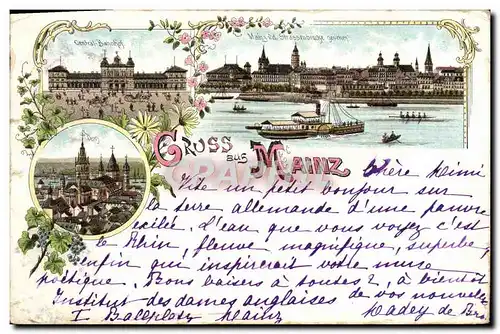 Central-Bahnhof
Mainz v.d. Strassenbrücke gesehen
Dom
GRUSS aus MAINZ
Chère Mimi
Vite un petit bonjour sur
la terre allemande d'une pauvre
exilée. L'eau que vous voyez c'est
le Rhin, fleuve magnifique, superbe,
enfin qui inspirerait votre muse
poétique. Bons baisers à toutes 2, à bientôt
Institut des dames anglaises de vos nouvelles
I Ballplatz Mainz